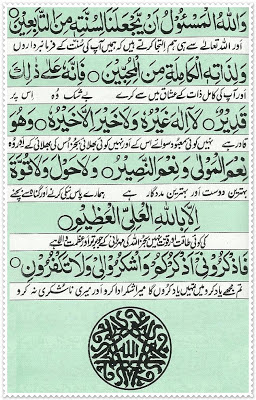 وَاللّٰهُ الْمَسْئُوْلُ اَنْ يَّجْعَلَنَا لِسُنَّتِهٖ مِنَ التَّابِعِيْنَ
اور اللہ تعالے سے ہی ہم التجا کرتے ہیں کہ ہمیں آپ کی سُنت کے فرمانبرداروں
وَلِذَاتِهِ الْكَامِلَةِ مِنَ الْمُحِبِّيْنَ ○ فَاِنَّهٗ عَلٰى ذٰلِكَ
اور آپ کی کامل ذات کے عشاق میں سے کردے بے شک وُہ اس پر
قَدِيْرٌ ○ لَآ اِلٰهَ غَيْرُهٗ وَلَا خَيْرَ اِلَّا خَيْرُهٗ ○ وَهُوَ
قادر ہے نہیں کوئی معبود سوائے اس کے اور نہیں کوئی بھلائی بجز اُس کی بھلائی کے اور وُہ
نِعْمَ الْمَوْلٰى وَنِعْمَ النَّصِيْرُ ○ وَلَا حَوْلَ وَلَا قُوَّةَ
بہترین دوست اور بہترین مددگار ہے ہمارے پاس نیکی کرنے اور گناہ سے بچنے
اِلَّا بِاللّٰهِ الْعَلِيِّ الْعَظِيْمِ ○
کی کوئی طاقت اور قوت نہیں بجز اللہ کی مہربانی کے جو برتر اور عظمت والا ہے
فَاذْكُرُوْنِيْٓ اَذْكُرْكُمْ وَاشْكُرُوْا لِيْ وَلَا تَكْفُرُوْنِ ○
تم مجھے یاد کرو میں تمہیں یاد کروں گا میرا شکر ادا کرو اور میری ناشکری نہ کرو
الله